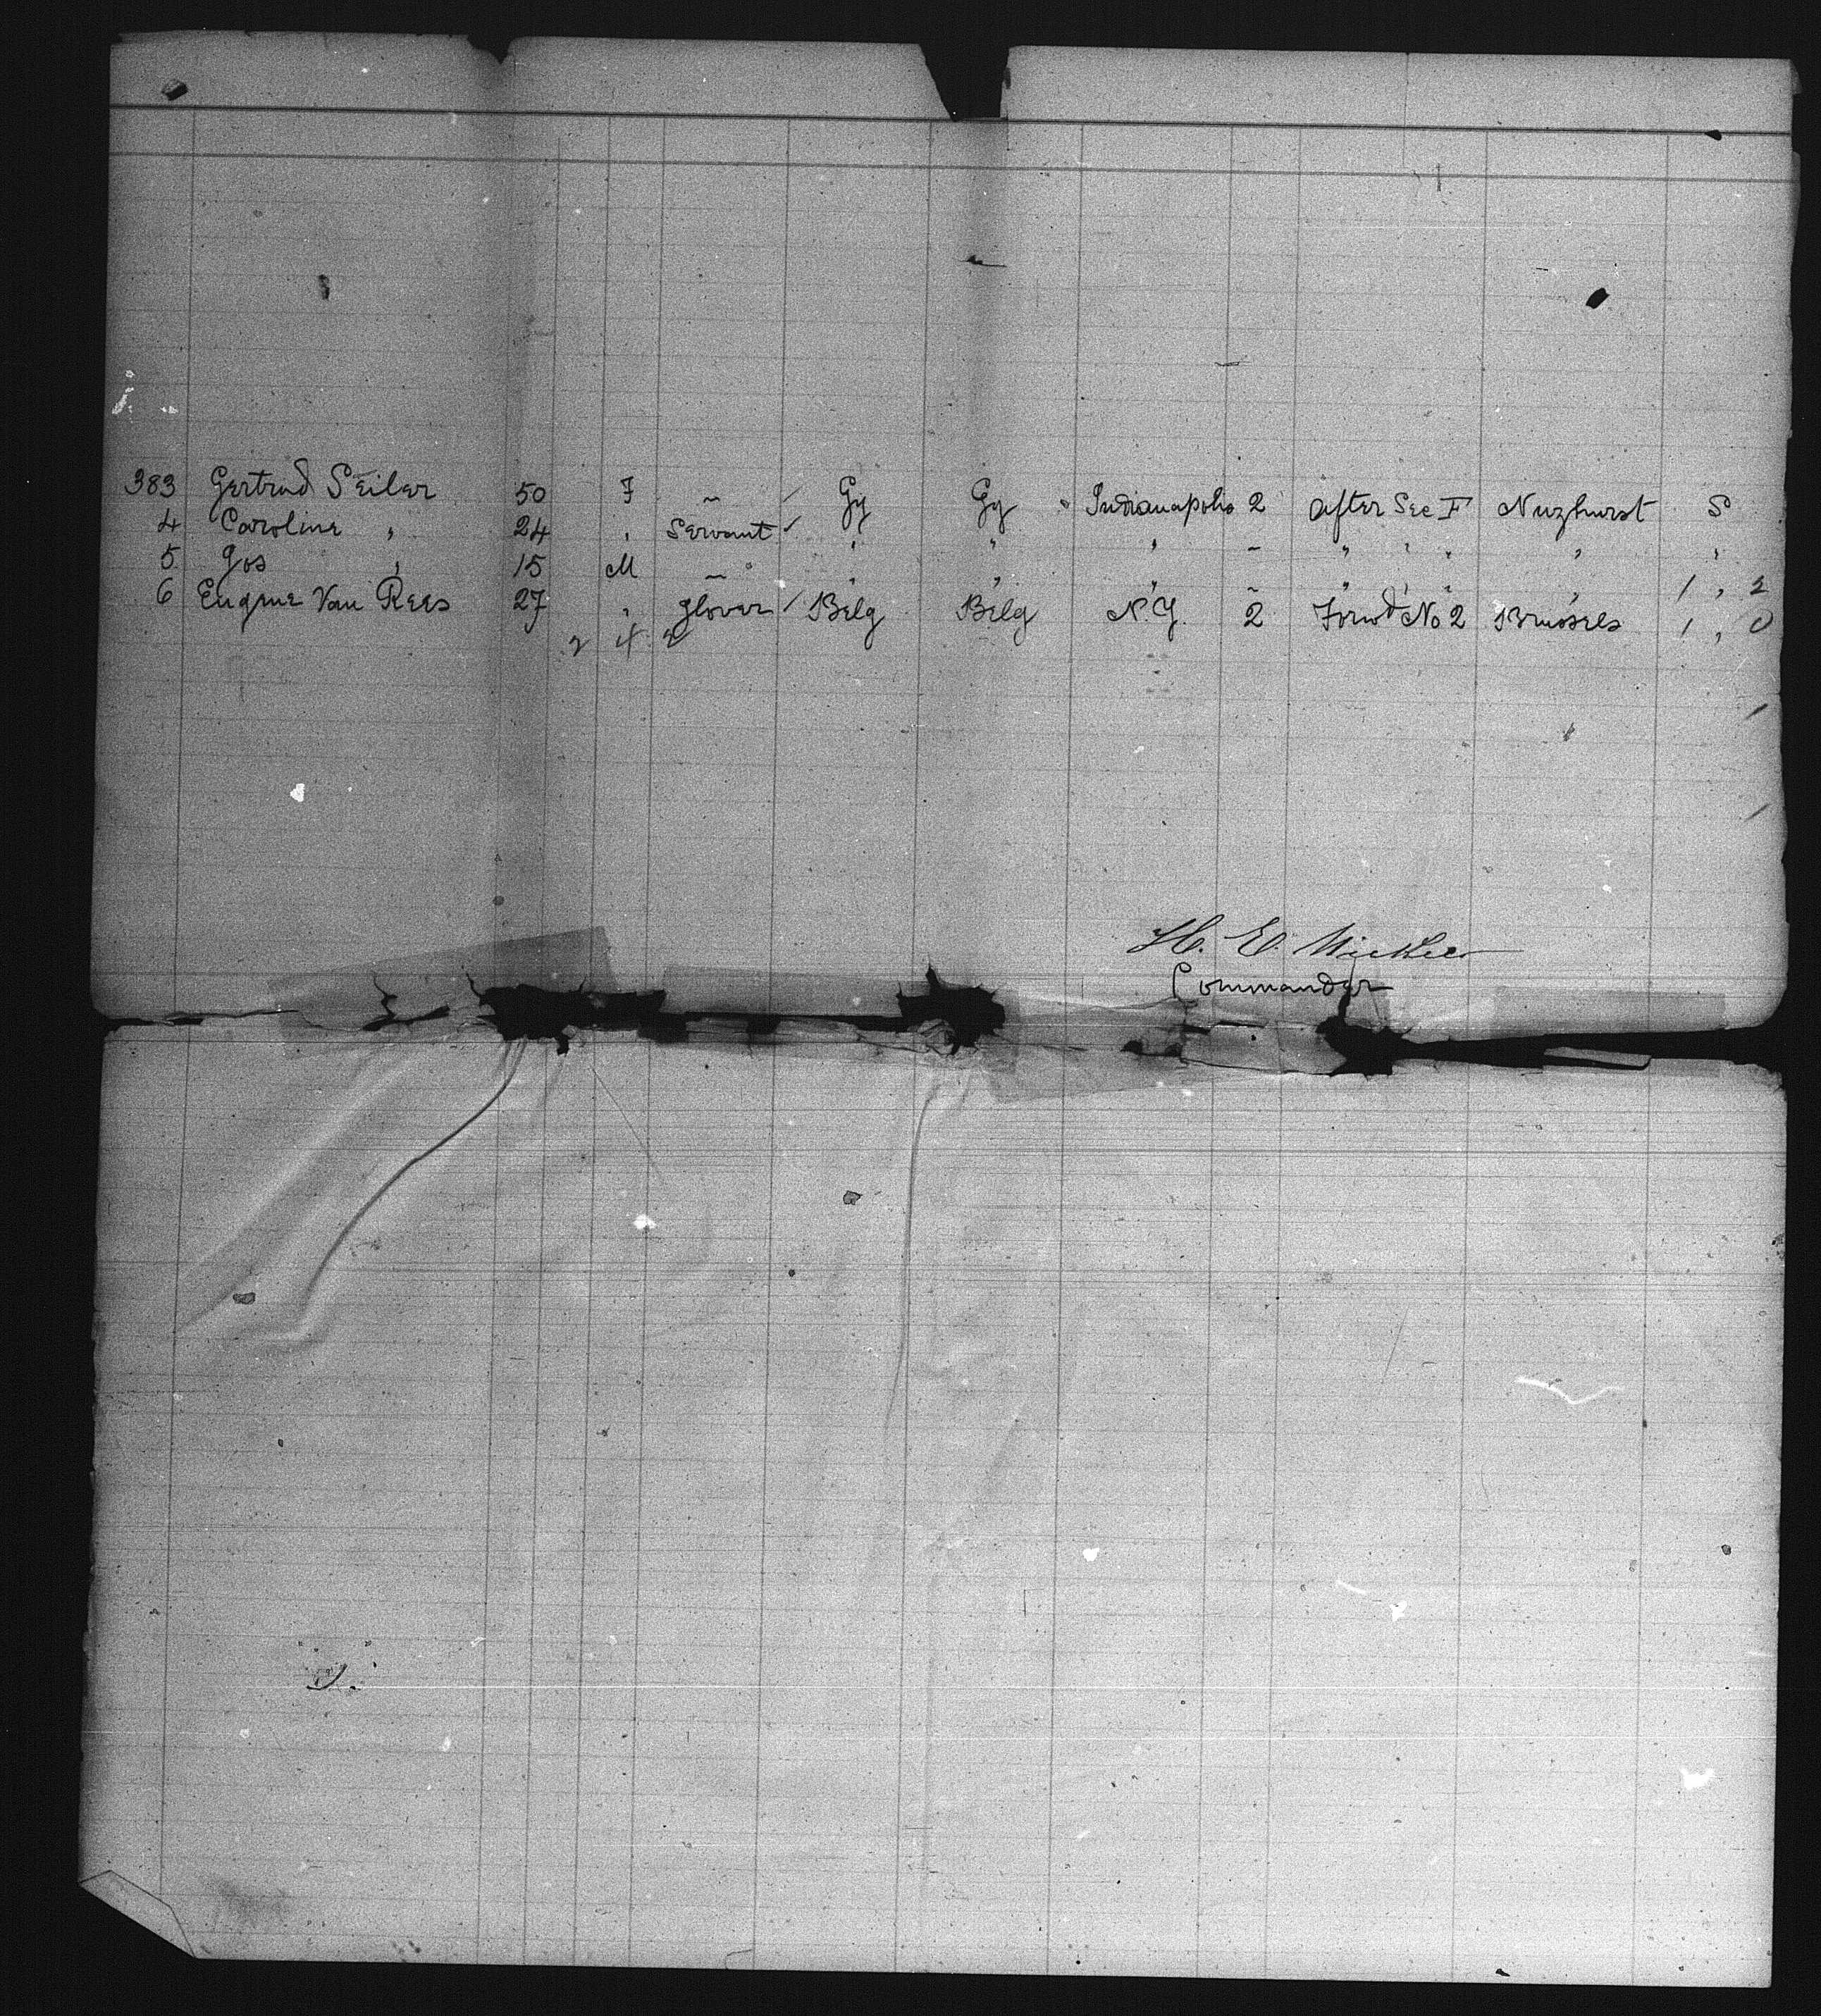 383 Gertrud Seiler 50 F ~ Gy Gy Indianapolis 2 After Sec F Nuzhurst S
4 Caroline " 24 " Servant " " " - " " " " "
5 Jos " 15 M ~ " " " - " " " " 1 " 2
6 Eugene Van Rees 27 " glover Belg Belg N.Y. 2 Forwd No 2 Brussels 1 " 0
2 4 2
H. E.
Commander